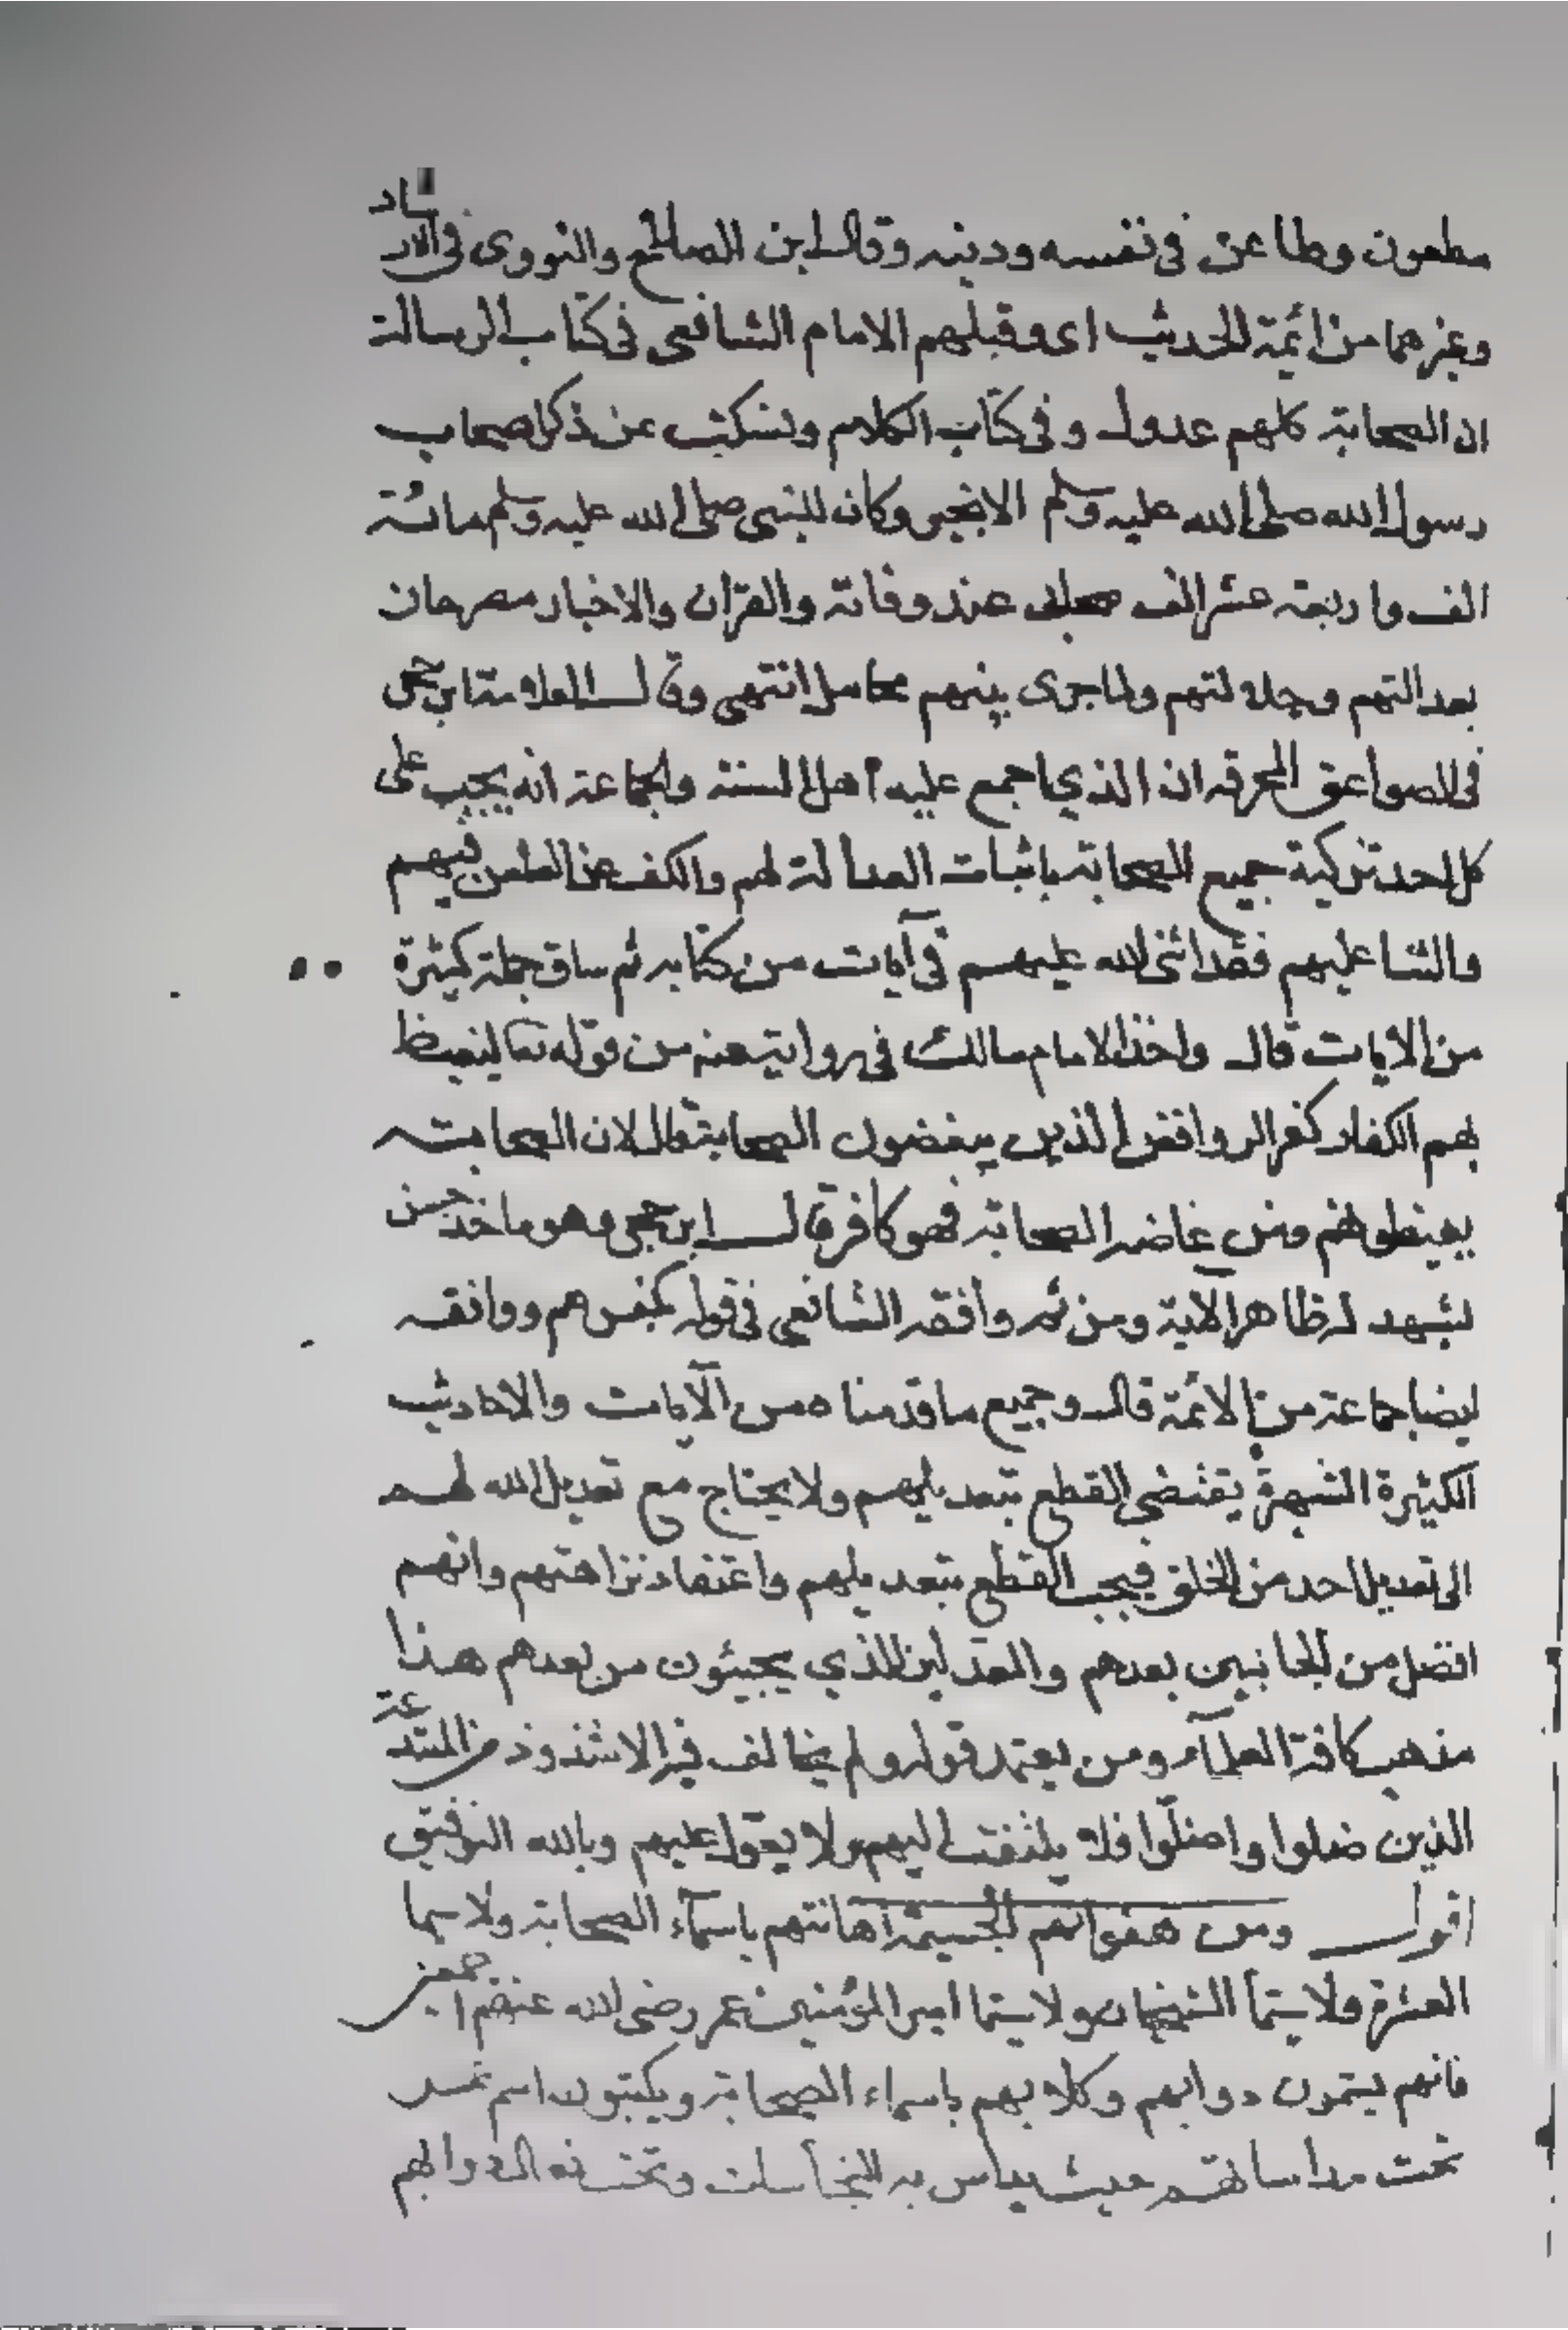 مطعون وطاعن في نفسه ودينه وقال ابن الصلاح والنووي في الارشاد
وغيرهما من ائمة الحديث اى وقبلهم الامام الشافعي في كتاب الرسالة
ان الصحابة كلهم عدول وفي كتاب الكلام ونسكت عن ذكر اصحاب
رسول الله صلى الله عليه وسلم الا بخير وكان للنبي صلى الله عليه وسلم مائة
الف واربعة عشر الف صحابي عند وفاته والقران والاخبار مصرحان
بعدالتهم وجلالتهم ولما جرى بينهم محامل انتهى وقال العلامة ابن حجر
في الصواعق المحرقه ان الذي اجمع عليه اهل السنة والجماعة انه يجب على
كل احد تزكية جميع الصحابة باثبات العدالة لهم والكف عن الطعن فيهم
والثنا عليهم فقد اثنى الله عليهم في آيات من كتابه ثم ساق جملة كثيرة
من الايات قال واخذ الامام مالك في رواية عنه من قوله تعا ليغيظ
بهم الكفار كفر الروافض الذين يبغضون الصحابة قال لان الصحابة
يغيظونهم ومن غاضه الصحابة فهو كافر قال ابن حجر وهو ماخذ حسن
يشهد له ظاهر الآية ومن ثم وافقه الشافعي في قوله بكفرهم ووافقه
ايضا جماعة من الائمة قال وجميع ما قدمناه من الآيات والاحاديث
الكثيرة الشهرة يقتضي القطع بتعديلهم ولا يحتاج مع تعديل الله لهم
الى تعديل احد من الخلق فيجب القطع بتعديلهم واعتقاد نزاهتهم وانهم
افضل من الجانبين بعدهم والمعدلين الذي يجيئون من بعدهم هذا
مذهب كافة العلمآء ومن يعتمد قوله ولم يخالف فيه الا شذوذ من المبتدعة
الذين ضلوا واضلوا فلا يلتفت اليهم ولا يعول عليهم وبالله التوفيق
اقول ومن هفواتهم الجسيمة اهانتهم باسمآء الصحابة ولا سيما
العشرة ولا سيمآ الشيخان ولا سيما امير المؤمنين عمر رضى الله عنهم اجمعين
فانهم يسمون دوابهم وكلابهم باسماء الصحابة ويكتبون اسم عمر
تحت مداساتهم حيث يداس به النجاسات وتحت نعال دوابهم